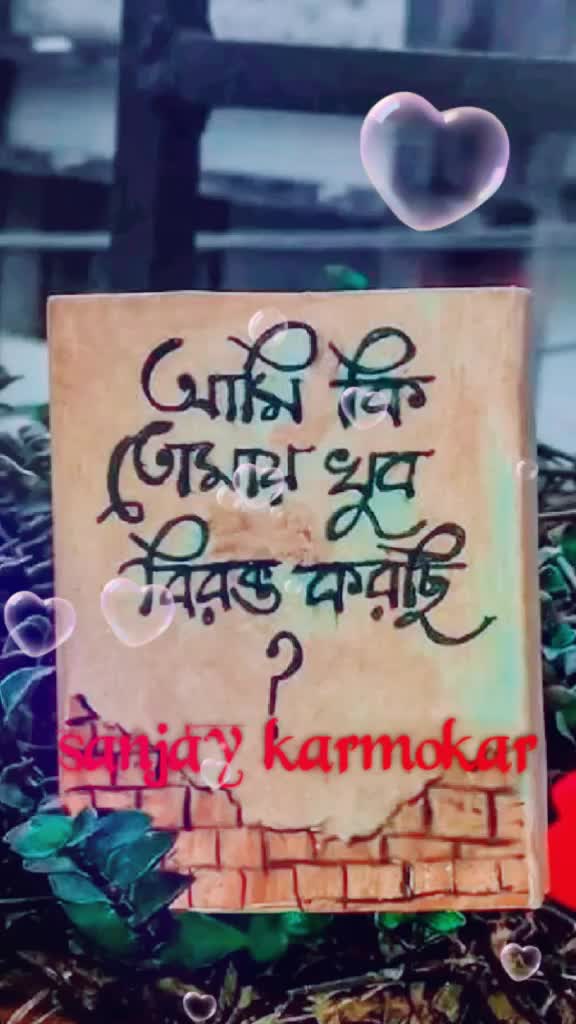 আমি কি
তোমায় খুব
বিরক্ত করছি
?
sanjay karmokar